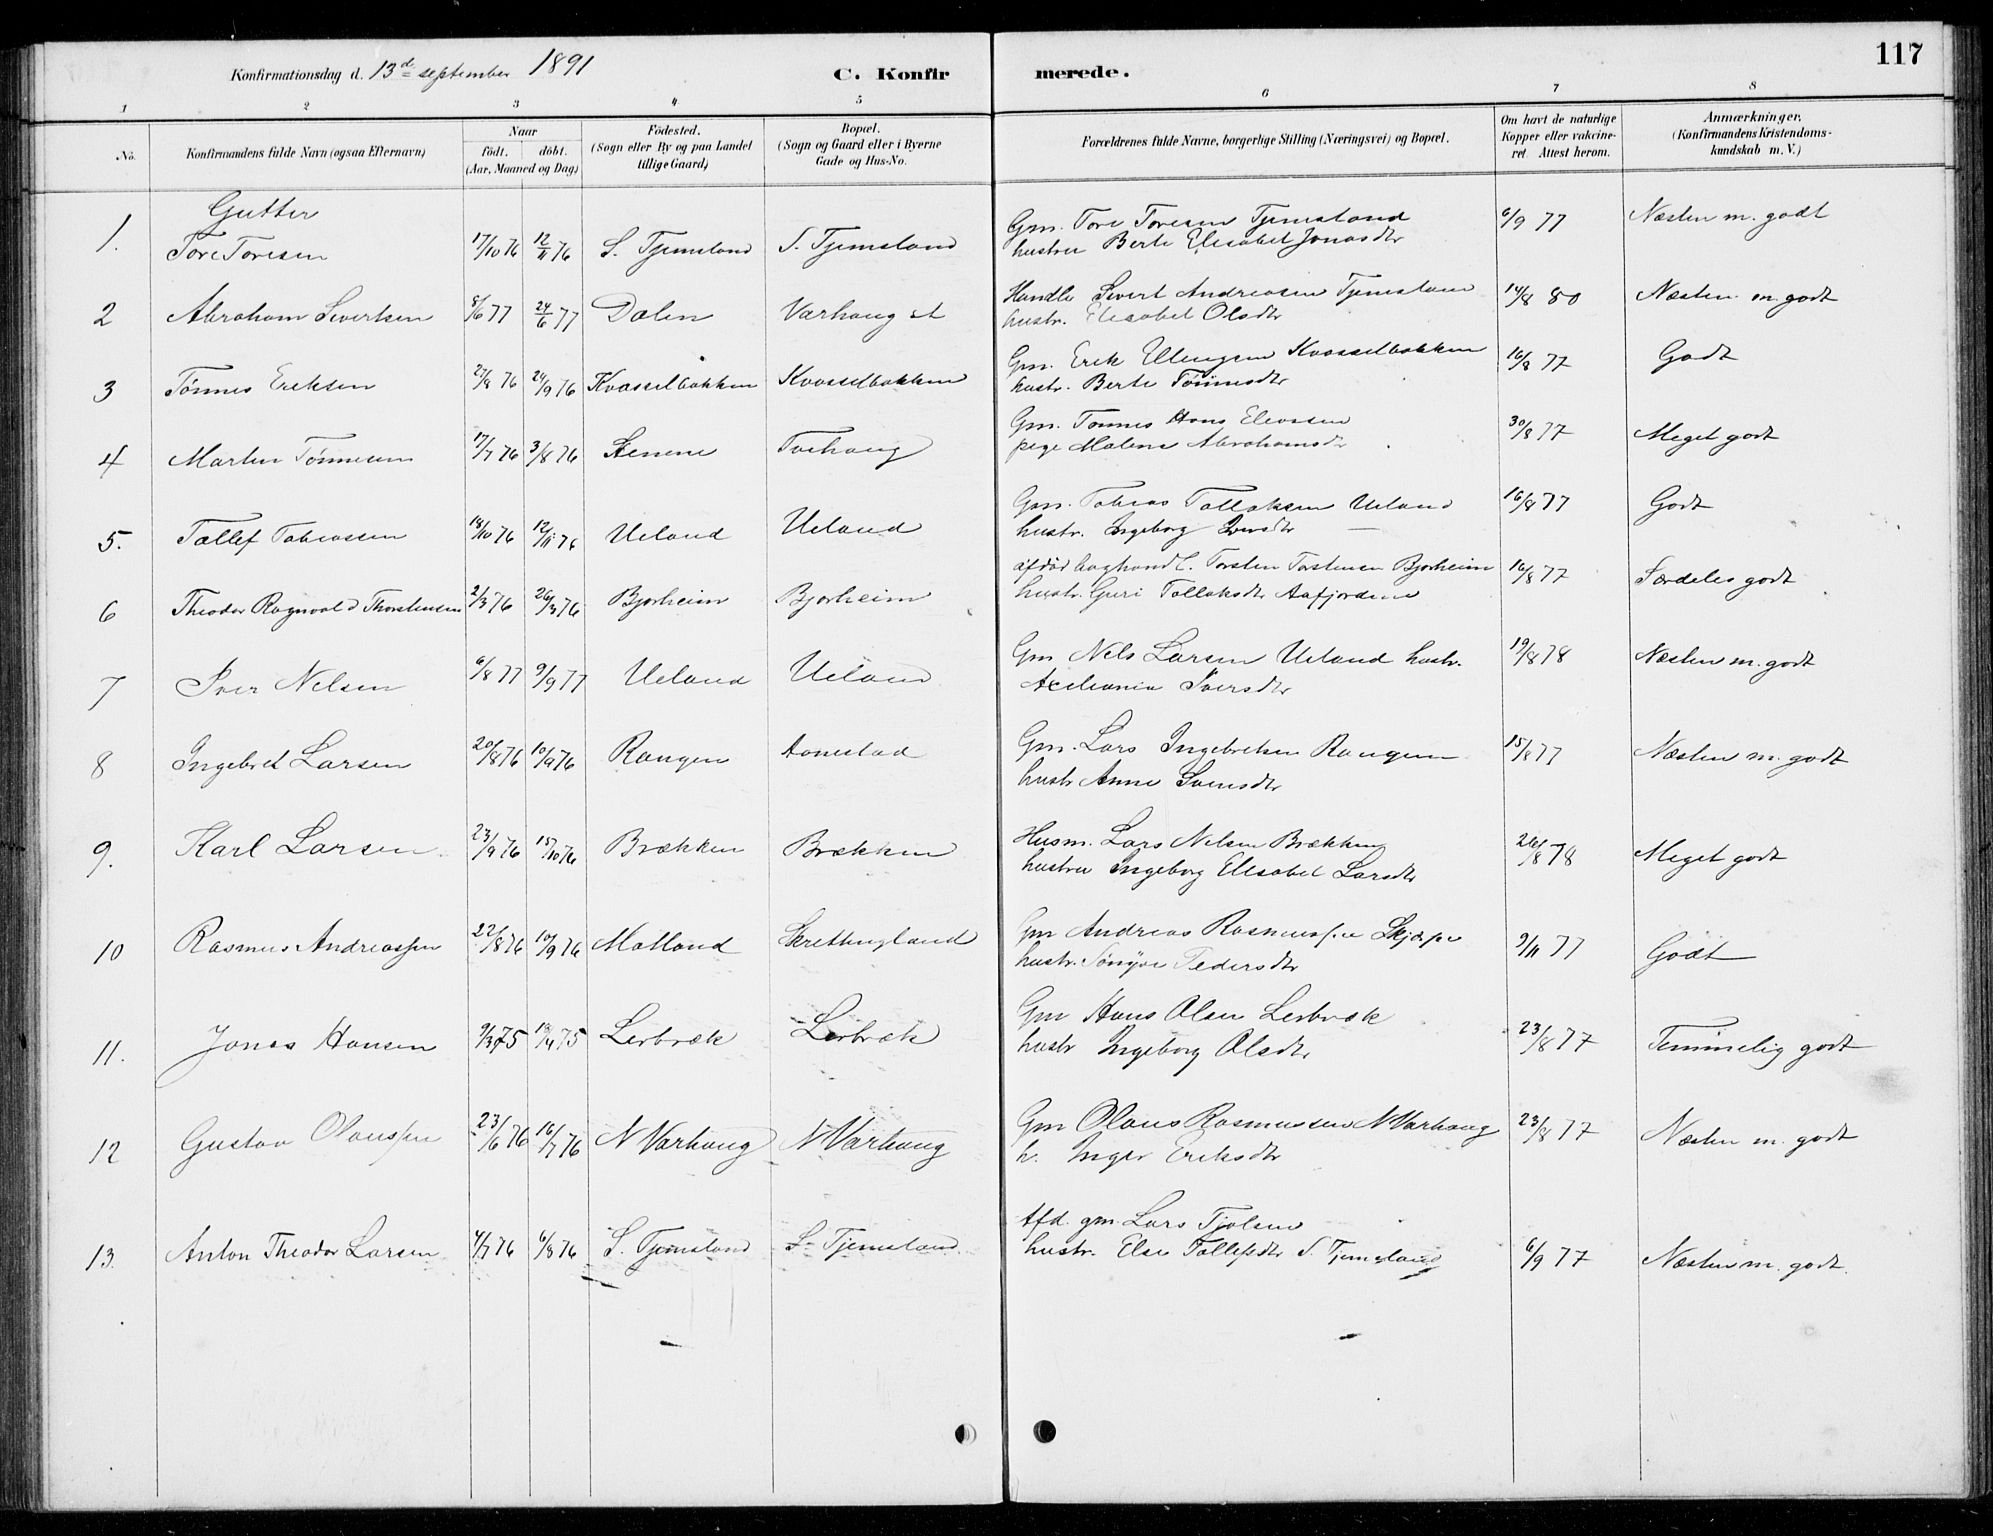 117
Konfirmationsdag d. 13de september 1891 C. Konfirmerede.
1 2 3 4 5 6 7 8
No. Konfirmandens fulde Navn (ogsaa Efternavn) Naar født. døbt. (Aar, Maaned og Dag) Födested. (Sogn eller By og paa Landet tillige Gaard) Bopæl. (Sogn og Gaard eller i Byerne Gade og Hus-No. Forældrenes fulde Navne, borgerlige Stilling (Næringsvei) og Bopæl. Om havt de naturlige Kopper eller vakcineret. Attest herom. Anmærkninger. (Konfirmandens Kristendomskundskab m. V.)
Gutter
1. Tore Toresen 17/10 76 12/11 76 S. Tjemsland S. Tjemsland Gm. Tore Toresen Tjemsland 6/9 77 Næsten m. godt
hustru Berte Elisabet Jonasdtr
2 Abraham Sivertsen 8/6 77 24/6 77 Dalen Varhaug st Handlr Sivert Andreasen Tjemsland 14/8 80 Næsten m. godt
hustr. Elisabet Olsdtr
3 Tönnes Eriksen 27/8 76 24/9 76 Kvasselbakken Kvasselbakken Gm. Erik Ellingsen Kvasselbakken 16/8 77 Godt
hustr. Berte Tönnesdtr
4 Martin Tönnesen 17/7 76 3/8 76 Stenene Torhaug Gm. Tonnes Hans Eleassen 30/8 77 Meget godt
pige Malene Abrahamsdtr
5. Tallef Tobiassen 18/10 76 12/11 76 Ueland Ueland Gm. Tobias Tallaksen Ueland 16/8 77 Godt
hustr. Ingeborg
6 Theodor Ragnvald Thorstensen 2/3 76 26/3 76 Bjorheim Bjorheim afdöd Torsten Tostensen Bjorheim 16/8 77 Særdeles godt
hustr. Guri Tollaksdtr Aafjordene
7 Iver Nelsen 6/8 77 9/9 77 Ueland Ueland Gm Nels Larsen Ueland hustr. 19/8 78 Næsten m. godt
Axeliania Iversdtr
8 Ingebret Larsen 20/8 76 10/9 76 Rangen Aanestad Gm. Lars Ingebretsen Rangen 15/8 77 Næsten m. godt
hustr Anne Svensdtr
9. Karl Larsen 23/9 76 15/10 76 Brækken Brækken Husm. Lars Nelsen Brækken 26/8 78 Meget godt
hustru Ingeborg Elisabet Larsdtr
10 Rasmus Andreassen 22/8 76 10/9 76 Motland Skretingland Gm Andreas Rasmussen 9/11 77 Godt
hustr. Pedersdtr
11. Jonas Hansen 9/3 75 18/4 75 Lerbræk Lerbræk Gm Hans Olsen Lerbræk 23/8 77 Temmelig godt
hustr Ingeborg Olsdtr
12 Gustav Olaussen 23/6 76 16/7 76 N Varhaug N Varhaug Gm Olaus Rasmussen N Varhaug 23/8 77 Næsten m. godt
h. Inger Eriksdtr
13. Anton Theodor Larsen 4/7 76 6/8 76 S. Tjemsland S. Tjemsland Afd. gm. Lars Tjølsen 6/9 77 Næsten m. godt.
hustr. Else Tallefsdtr S. Tjemsland